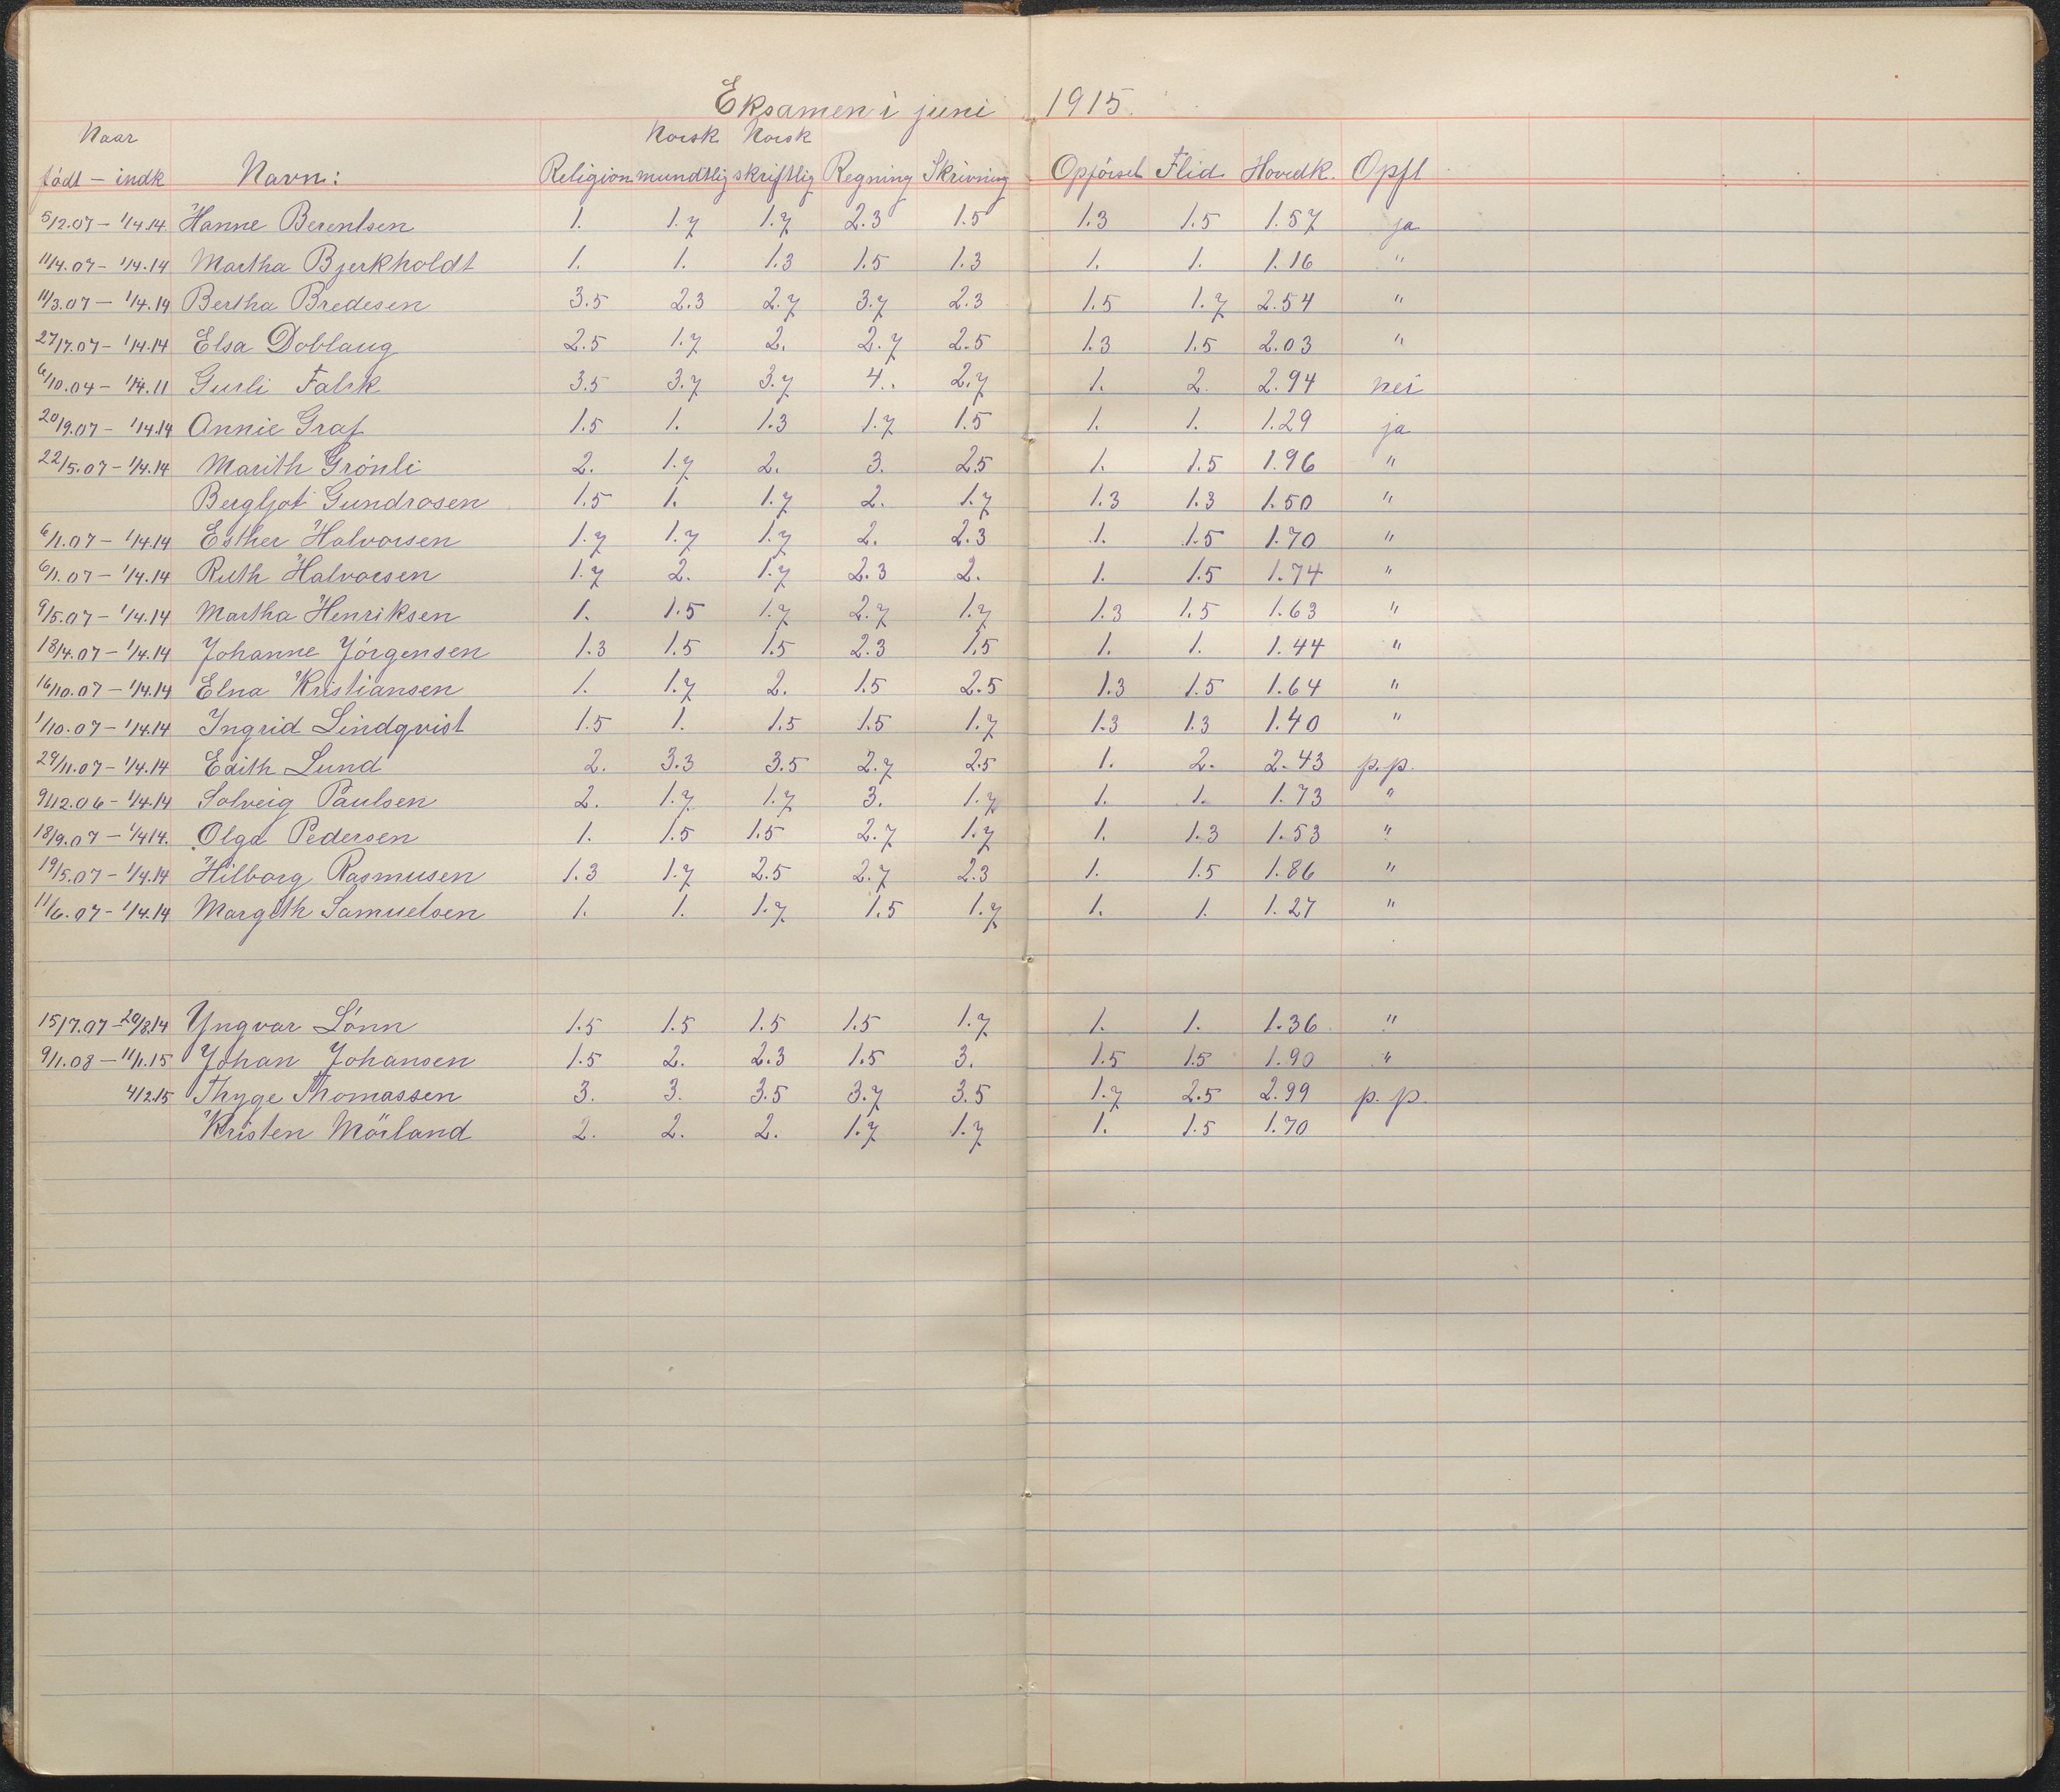 Eksamen i juni 1915.
Naar Norsk Norsk
födt - indk Navn: Religion mundtlig skriftlig Regning Skrivning Opförsel Flid Hovedk. Opfl
5/12.07 - 1/4.14 Hanne Berentsen 1. 1.7 1.7 2.3 1.5 1.3 1.5 1.57 ja
11/4.07 - 1/4.14 Martha Bjerkholdt 1. 1. 1.3 1.5 1.3 1. 1. 1.16 "
11/3.07 - 1/4.14 Bertha Bredesen 3.5 2.3 2.7 3.7 2.3 1.5 1.7 2.54 "
27/7.07 - 1/4.14 Elsa Doblaug 2.5 1.7 2. 2.7 2.5 1.3 1.5 2.03 "
6/10.04 - 1/4.11 Gurli Falck 3.5 3.7 3.7 4. 2.7 1. 2. 2.94 nei
20/9.07 - 1/4.14 Annie Graf 1.5 1. 1.3 1.7 1.5 1. 1. 1.29 ja
22/5.07 - 1/4.14 Marith Grönli 2. 1.7 2. 3. 2.5 1. 1.5 1.96 "
Bergljot Gundrosen 1.5 1. 1.7 2. 1.7 1.3 1.3 1.50 "
6/1.07 - 1/4.14 Esther Halvorsen 1.7 1.7 1.7 2. 2.3 1. 1.5 1.70 "
6/1.07 - 1/4.14 Ruth Halvorsen 1.7 2. 1.7 2.3 2. 1. 1.5 1.74 "
9/5.07 - 1/4.14 Martha Henriksen 1. 1.5 1.7 2.7 1.7 1.3 1.5 1.63 "
18/4.07 - 1/4.14 Johanne Jörgensen 1.3 1.5 1.5 2.3 1.5 1. 1. 1.44 "
16/10.07 - 1/4.14 Elna Kristiansen 1. 1.7 2. 1.5 2.5 1.3 1.5 1.64 "
1/10.07 - 1/4.14 Ingrid Lindqvist 1.5 1. 1.5 1.5 1.7 1.3 1.3 1.40 "
29/11.07 - 1/4.14 Edith Lund 2. 3.3 3.5 2.7 2.5 1. 2. 2.43 p.p.
9/12.06 - 1/4.14 Solveig Paulsen 2. 1.7 1.7 3. 1.7 1. 1. 1.73 "
18/9.07 - 1/4 14. Olga Pedersen 1. 1.5 1.5 2.7 1.7 1. 1.3 1.53 "
19/5.07 - 1/4.14 Hilborg Rasmusen 1.3 1.7 2.5 2.7 2.3 1. 1.5 1.86 "
11/6.07 - 1/4.14 Margith Samuelsen 1. 1. 1.7 1.5 1.7 1. 1. 1.27 "
15/7.07 - 20/8.14 Yngvar Lönn 1.5 1.5 1.5 1.5 1.7 1. 1. 1.36 "
9/1.08 - 11/1.15 Johan Johansen 1.5 2. 2.3 1.5 3. 1.5 1.5 1.90 "
4/2.15 Thyge Thomassen 3. 3. 3.5 3.7 3.5 1.7 2.5 2.99 p.p.
Kristen Mörland 2. 2. 2. 1.7 1.7 1. 1.5 1.70